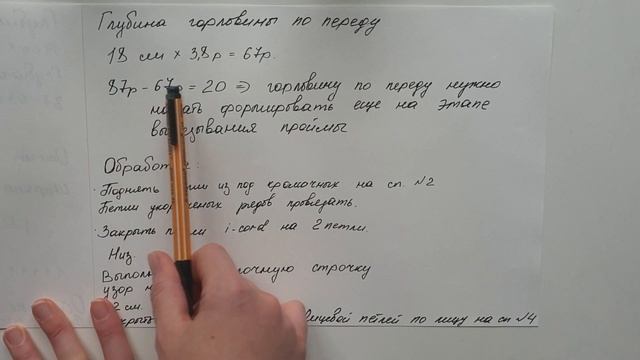 Глубина горловины по переду
18 см × 3,8р = 67р.
87р - 67р = 20 => горловину по переду нужно
формировать еще на этапе
проймы
Обработка:
· Поднять петли из под кромочных на сп. №2
Петли укороченых рядов провязать.
· Закрыть петли i-cord на 2 петли.
Низ.
строчку
узор
2 см.
лицевой петлей по лицу на сп №4